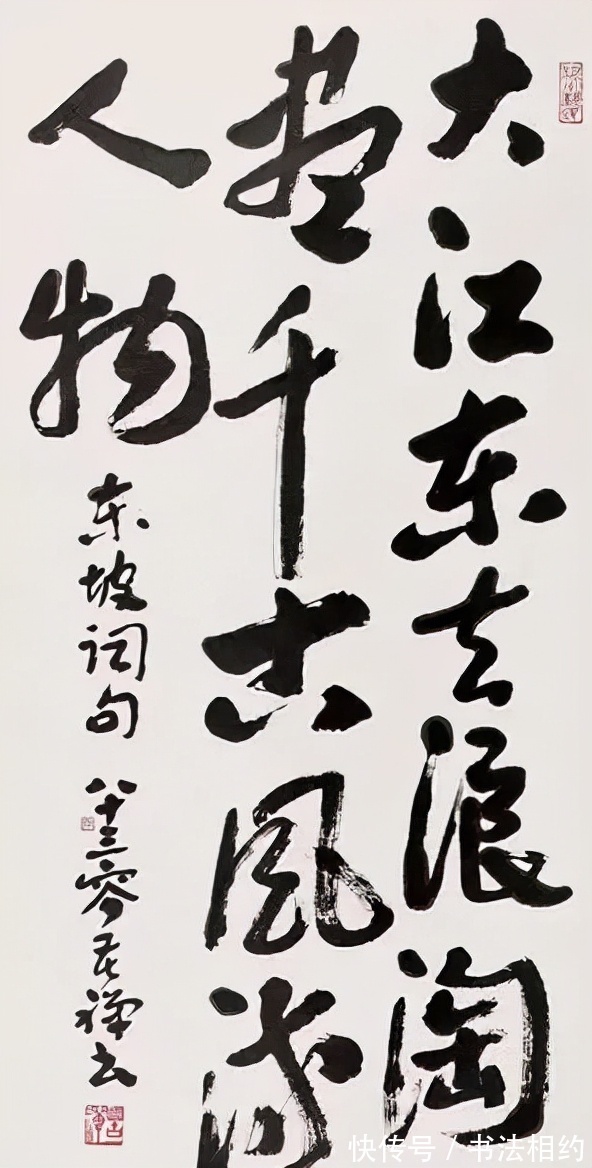 大江东去浪淘
盡千古风流
人物
东坡词句 八十三 苦禅书
快传号 / 书法相约